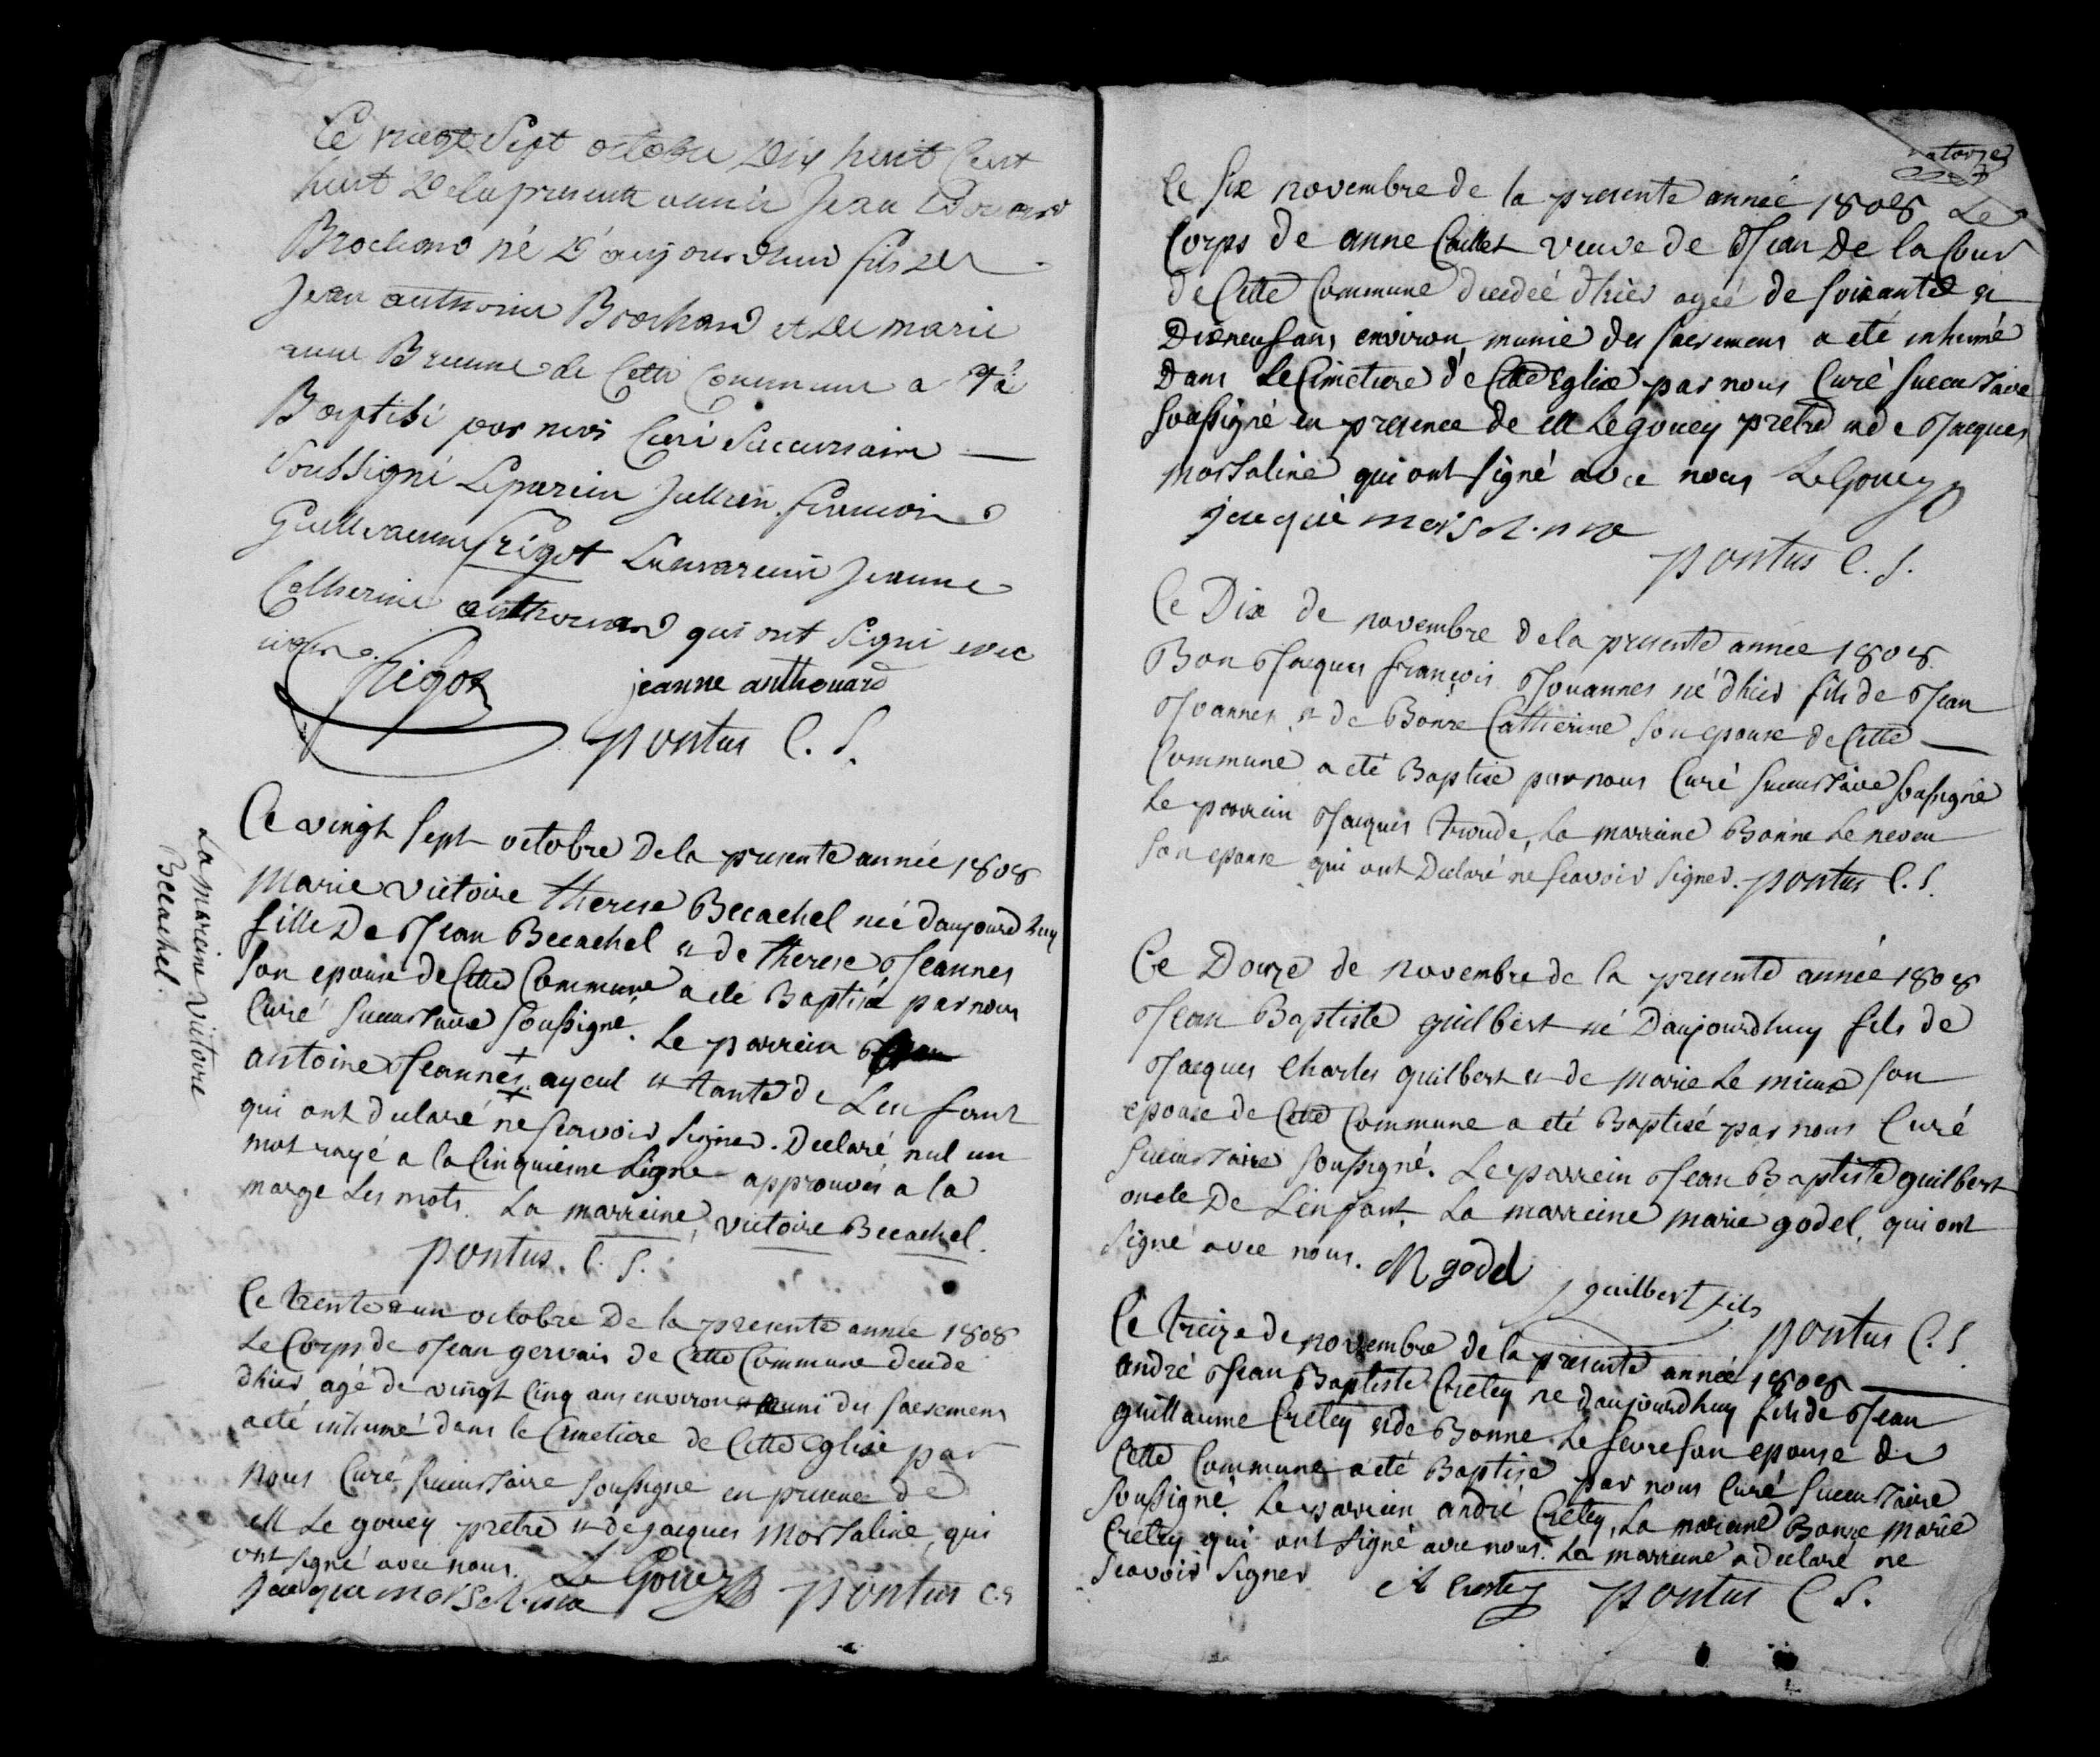 Ce vingt Sept octobre Dix huit Cent
huit De la presente année Jean Edouard
Brochard né D'aujourdhui fils de
Jean anthoine Brochard et de marie
anne Brunne de Cette Commune a été
Baptisé par nous Curé Succursaire
Soussigné Le parein Julien francois
Guillaume frigot La mareine Jeanne
Catherine anthouard qui ont Signé avec
nous.
frigot
jeanne anthouard
pontus C. S.
Ce vingt Sept octobre De la presente année 1808
Marie victoire therese Becachel née daujourdhuy
fille De Jean Becachel et de therese Jeannes
Son epouse de Cette Commune a été Baptisée par nous
Curé Succursaire Soussigné. Le parrein
antoine Jeannes. ayeul et tante de Lenfant
qui ont declaré ne Scavoir Signer. Declaré nul un
mot rayé a la Cinquieme Ligne approuvés a la
marge Les mots. La marreine, victoire Becachel.
pontus. C. S.
La mareine victoire
Becachel.
Ce trente et un octobre De la presente année 1808
Le Corps de Jean gervais de Cette Commune decedé
d'hier agé de vingt Cinq ans environ muni des Sacremens
a été inhumé dans le Cimetiere de Cette Eglise par
nous Curé Succursaire Soussigné en presence de
M Le gouey pretre et de Jacques Morsaline, qui
ont Signé avec nous. Le Gouey
pontus C.S
atorze
Ce Six novembre de la presente année 1808 Le
Corps de anne Caillet veuve de Jean De la Cour
de Cette Commune decedée d'hier agée de Soixante et
Dixneuf ans environ munie des Sacremens a été inhumé
Dans Le Cimetiere de Cette Eglise par nous Curé Succursaire
Soussigné en presence de M Le gouey pretre et de Jacques
morsaline qui ont Signé avec nous LeGouey
pontus C. S.
Ce Dix de novembre de la presente année 1808
Bon Jacques François Jouannes né d'hier fils de Jean
Jouannes et de Bonne Catherine Son epouse de Cette
Commune a été Baptisé par nous Curé Succursaire Soussigné
Le parrein Jacques troude, La marreine Bonne Le neveu
Son epouse qui ont Declaré ne Scavoir Signer. pontus C. S.
Ce Douze de novembre de la presente année 1808
Jean Baptiste guilbert né Daujourdhuy fils de
Jacques Charles guilbert et de Marie Le mieux Son
epouse de Cette Commune a été Baptisé par nous Curé
Succursaire Soussigné. Le parrein Jean Baptiste guilbert
oncle De Lenfant. La marreine marie godel, qui ont
Signé avec nous. M godel
guilbert fils
pontus C. S.
Ce treize de novembre de la presente année 1808
andré Jean Baptiste Cretey né daujourdhuy fils de Jean
guillaume Cretey et de Bonne Le fevre Son epouse de
Cette Commune a été Baptisé par nous Curé Succursaire
Soussigné. Le parrein andré Cretey, La marreine Bonne Marie
Cretey qui ont Signé avec nous. La marreine a declaré ne
Scavoir Signer
pontus C S.